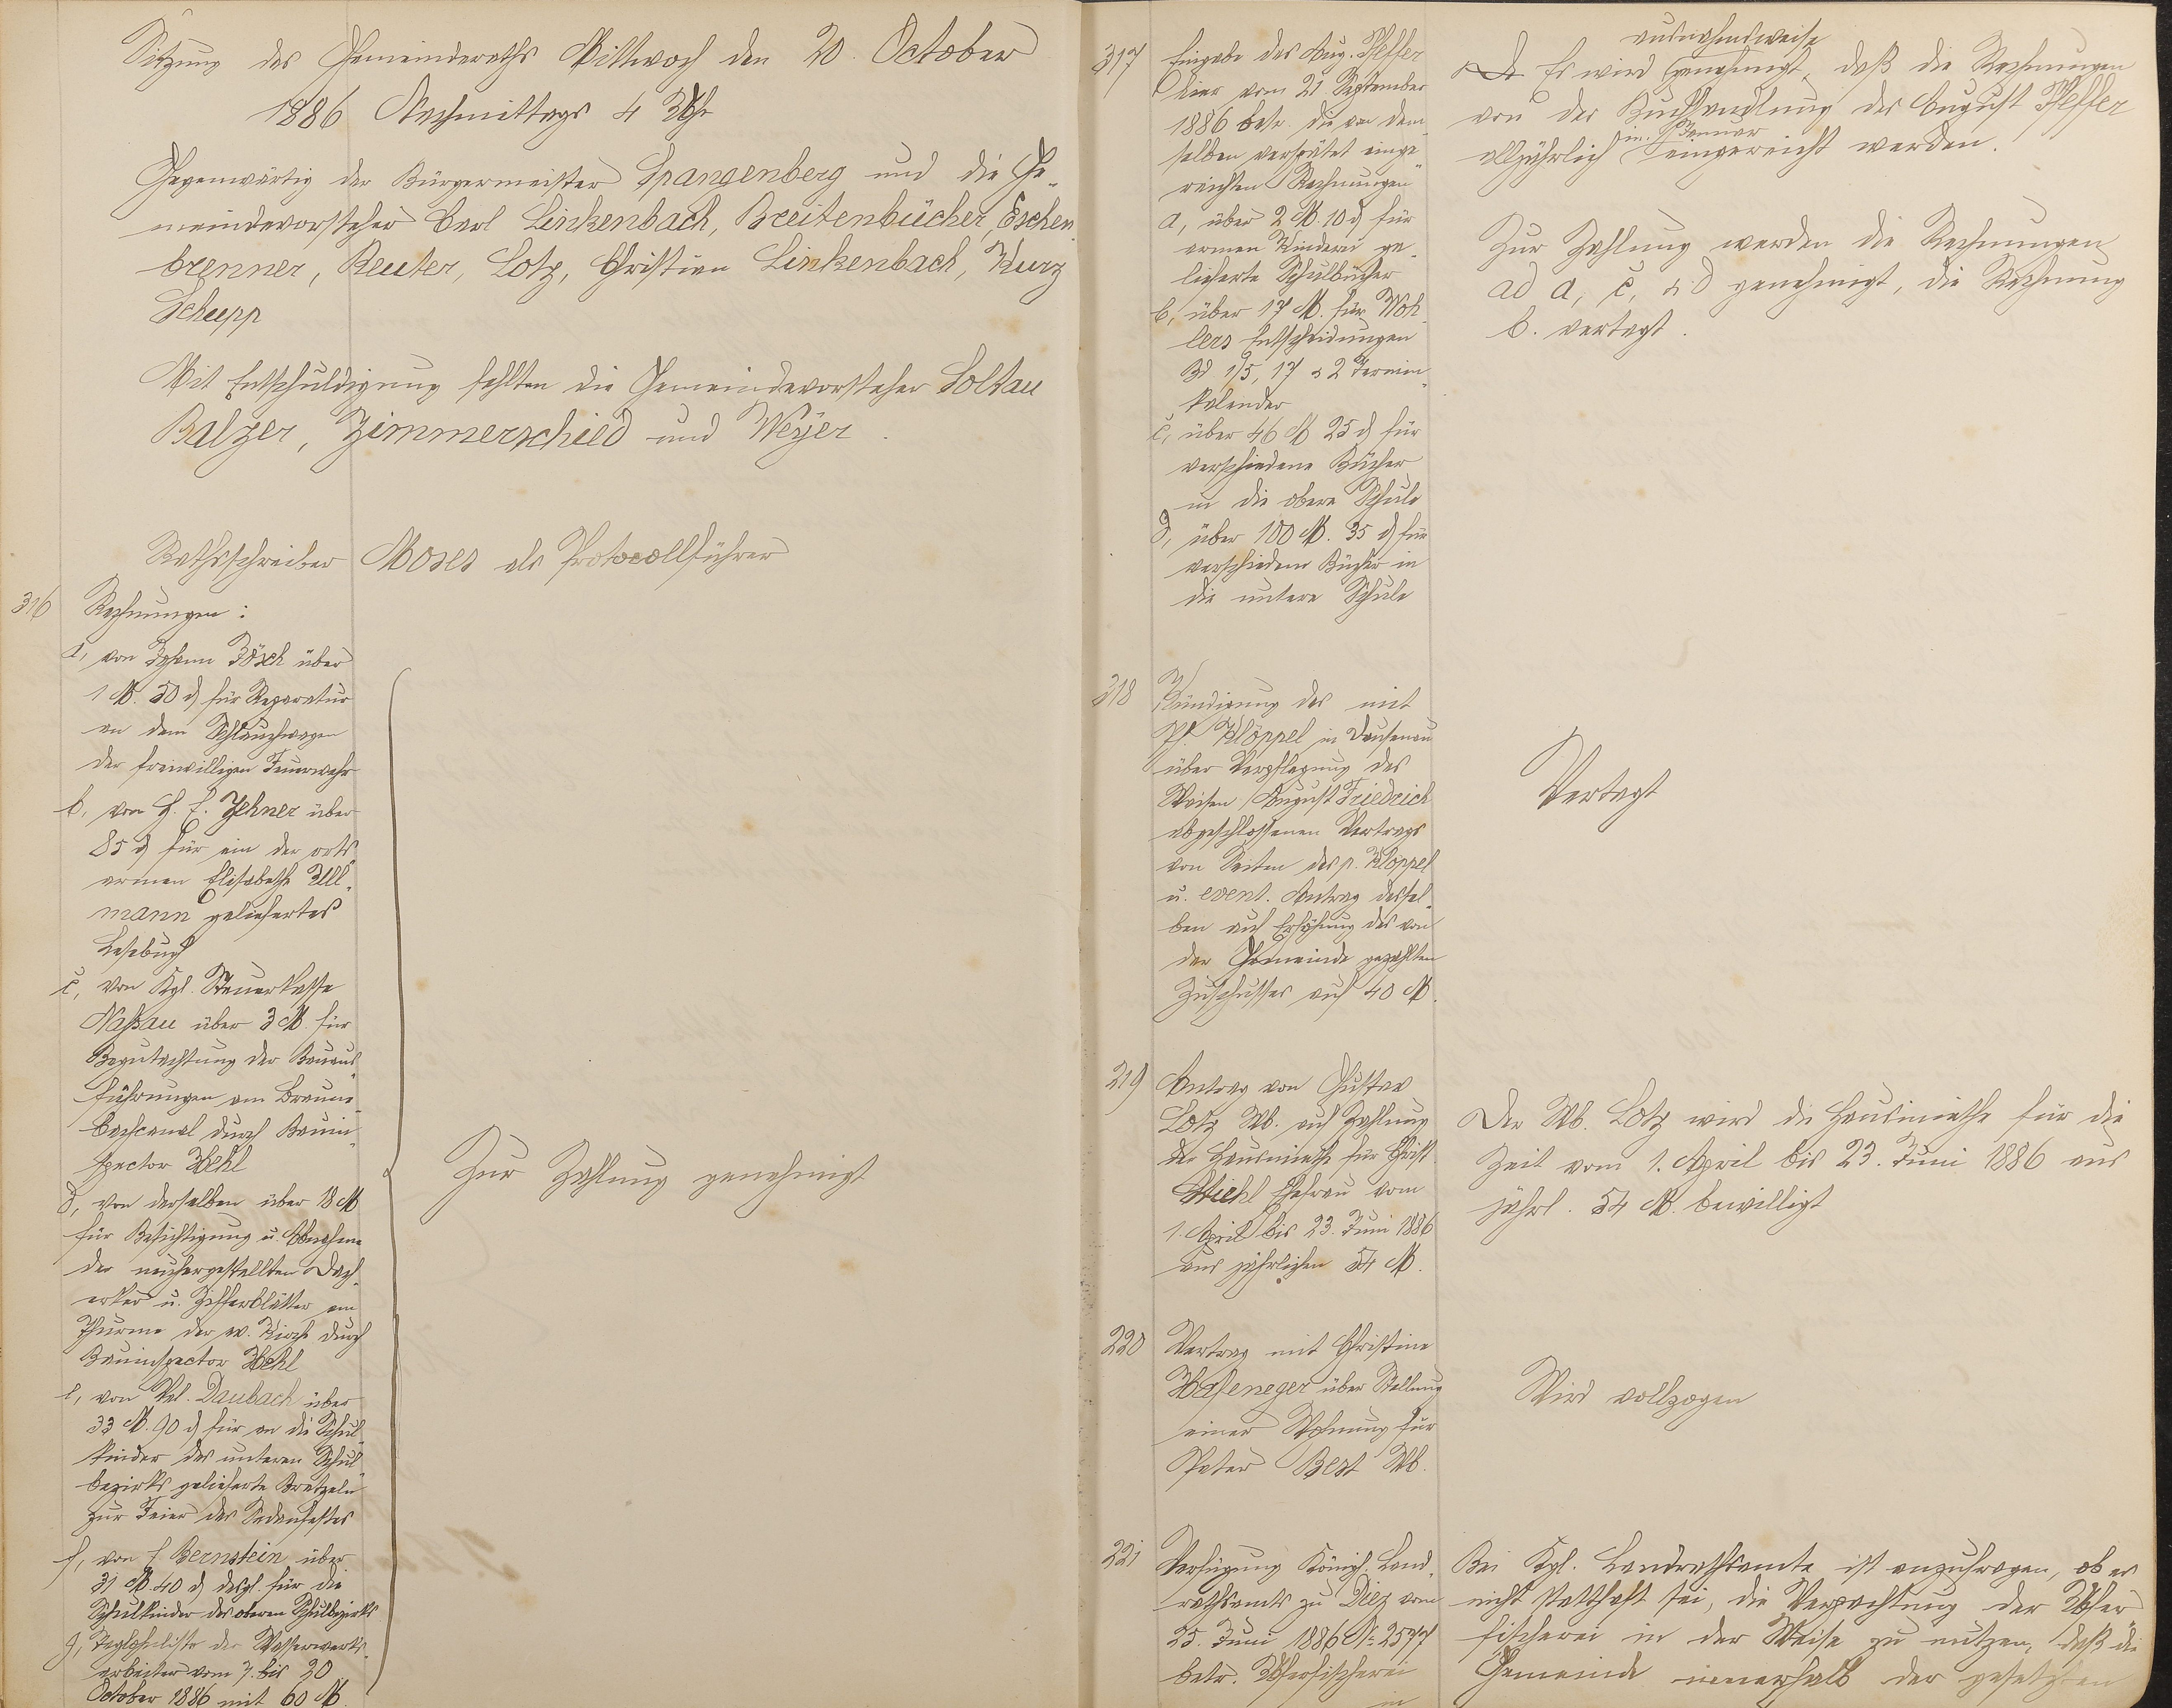 Sitzung des Gemeinderaths Mittwoch den 20. October
1886 Nachmittags 4 Uhr
Gegenwärtig der Bürgermeister Spangenberg und die Ge-
meindevorsteher Carl Linkenbach, Breitenbücher, Eschen
brenner, Reuter, Lotz, Christian Linkenbach, Kurz
Schupp
Mit Entschuldigung fehlten die Gemeindevorsteher Soltau
Balzer, Zimmerschied und Weyer.
Rathsschreiber Moses als Protocollführer
316 Rechnungen:
a, von Johann Bösch über
1 M. 50 d für Reparatur
an dem Schlauchwagen
der freiwilligen Feuerwehr
b, von H. C. Jehner über
85 d für ein der orts
armen Elisabethe Ull-
mann geliefertes
Lesebuch
c, von Kgl. Steuerkasse
Nassau über 3 M für
Begutachtung der Bauaus-
führungen am Braune-
bachcanal durch Bauin-
spector Hehl
d, von derselben über 18 M
für Besichtigung u. Abnahme
der neuhergestellten Dach-
erker u. Zifferblätter am
Thurme der ev. Kirche durch
Bauinspector Hehl
e, von Wl. Daubach über
33 M. 90 d für an die Schul-
kinder des unteren Schul-
bezirks gelieferte Bretzeln
zur Feier des Sedanfestes
f, von Bernstein über
31 M. 40 d desgl. für die
Schulkinder des oberen Schulbezirks
g, Taglohnliste der Wasserwerks-
arbeiter vom 7. bis 20
October 1886 mit 60 M.
Zur Zahlung genehmigt
317 Eingabe des Aug. Pfeffer
hier vom 21 September
1886 betr. die von dem-
selben verspätet einge-
reichten Rechnungen
a, über 2 M. 10 d für
armen Kindern ge-
lieferte Schulbücher
b, über 17 M. für Woh-
lers Entscheidungen
Bd. 1/5, 17 & 2 Termin-
kalender
c, über 46 M 25 d für
verschiedene Bücher
in die obere Schule
d, über 100 M. 35 d für
verschiedene Bücher in
die untere Schule
ausnahmsweise
Es wird genehmigt, daß die Rechnungen
von der Buchhandlung des August Pfeffer
im Januar
alljährlich eingereicht werden.
Zur Zahlung werden die Rechnungen
ad a, c, & d genehmigt, die Rechnung
b. vertagt.
318 Kündigung des mit
Ph. Klöppel in Dausenau
über Verpflegung des
Waisen August Friedrich
abgeschlossenen Vertrags
von Seiten des p. Klöppel
u. event. Antrag dessel-
ben auf Erhöhung des von
der Gemeinde gezahlten
Zuschusses auf 40 M.
Vertagt
219 Antrag von Gustav
Lotz Wb. auf Zahlung
der Hausmiethe für Christ.
Stiehl Ehefrau vom
1. April bis 23. Juni 1886
aus jährlichen 54 M.
Der Wb. Lotz wird die Hausmiethe für die
Zeit vom 1. April bis 23. Juni 1886 aus
jährl. 54 M. bewilligt
220 Vertrag mit Christine
Hafeneger über Stellung
einer Wohnung für
Peter Best Wb.
Wird vollzogen
221 Verfügung Königl. Land-
rathsamts zu Diez vom
25. Juni 1886 No 2577
betr. Uferfischerei
in
Bei Kgl. Landrathsamte ist anzufragen, ob es
nicht statthaft sei, die Verpachtung der Ufer
fischerei in der Weise zu nutzen, daß die
Gemeinde innerhalb der gesetzten